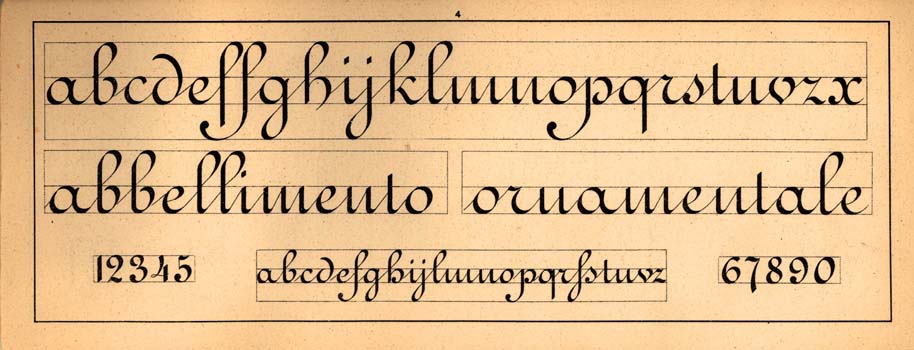 4
abcdefſghijklmnopqrstuvzx
abbellimento ornamentale
12345 abcdefghijlmnopqrſstuvz 67890